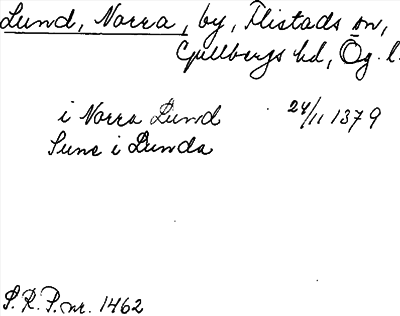 Lund, Norra, by, Flistads sn,
Gullbergs hd, Ög. l.
i Norra Lund 24/11 1379
Sune i Lunda
S. R. P. nr. 1462